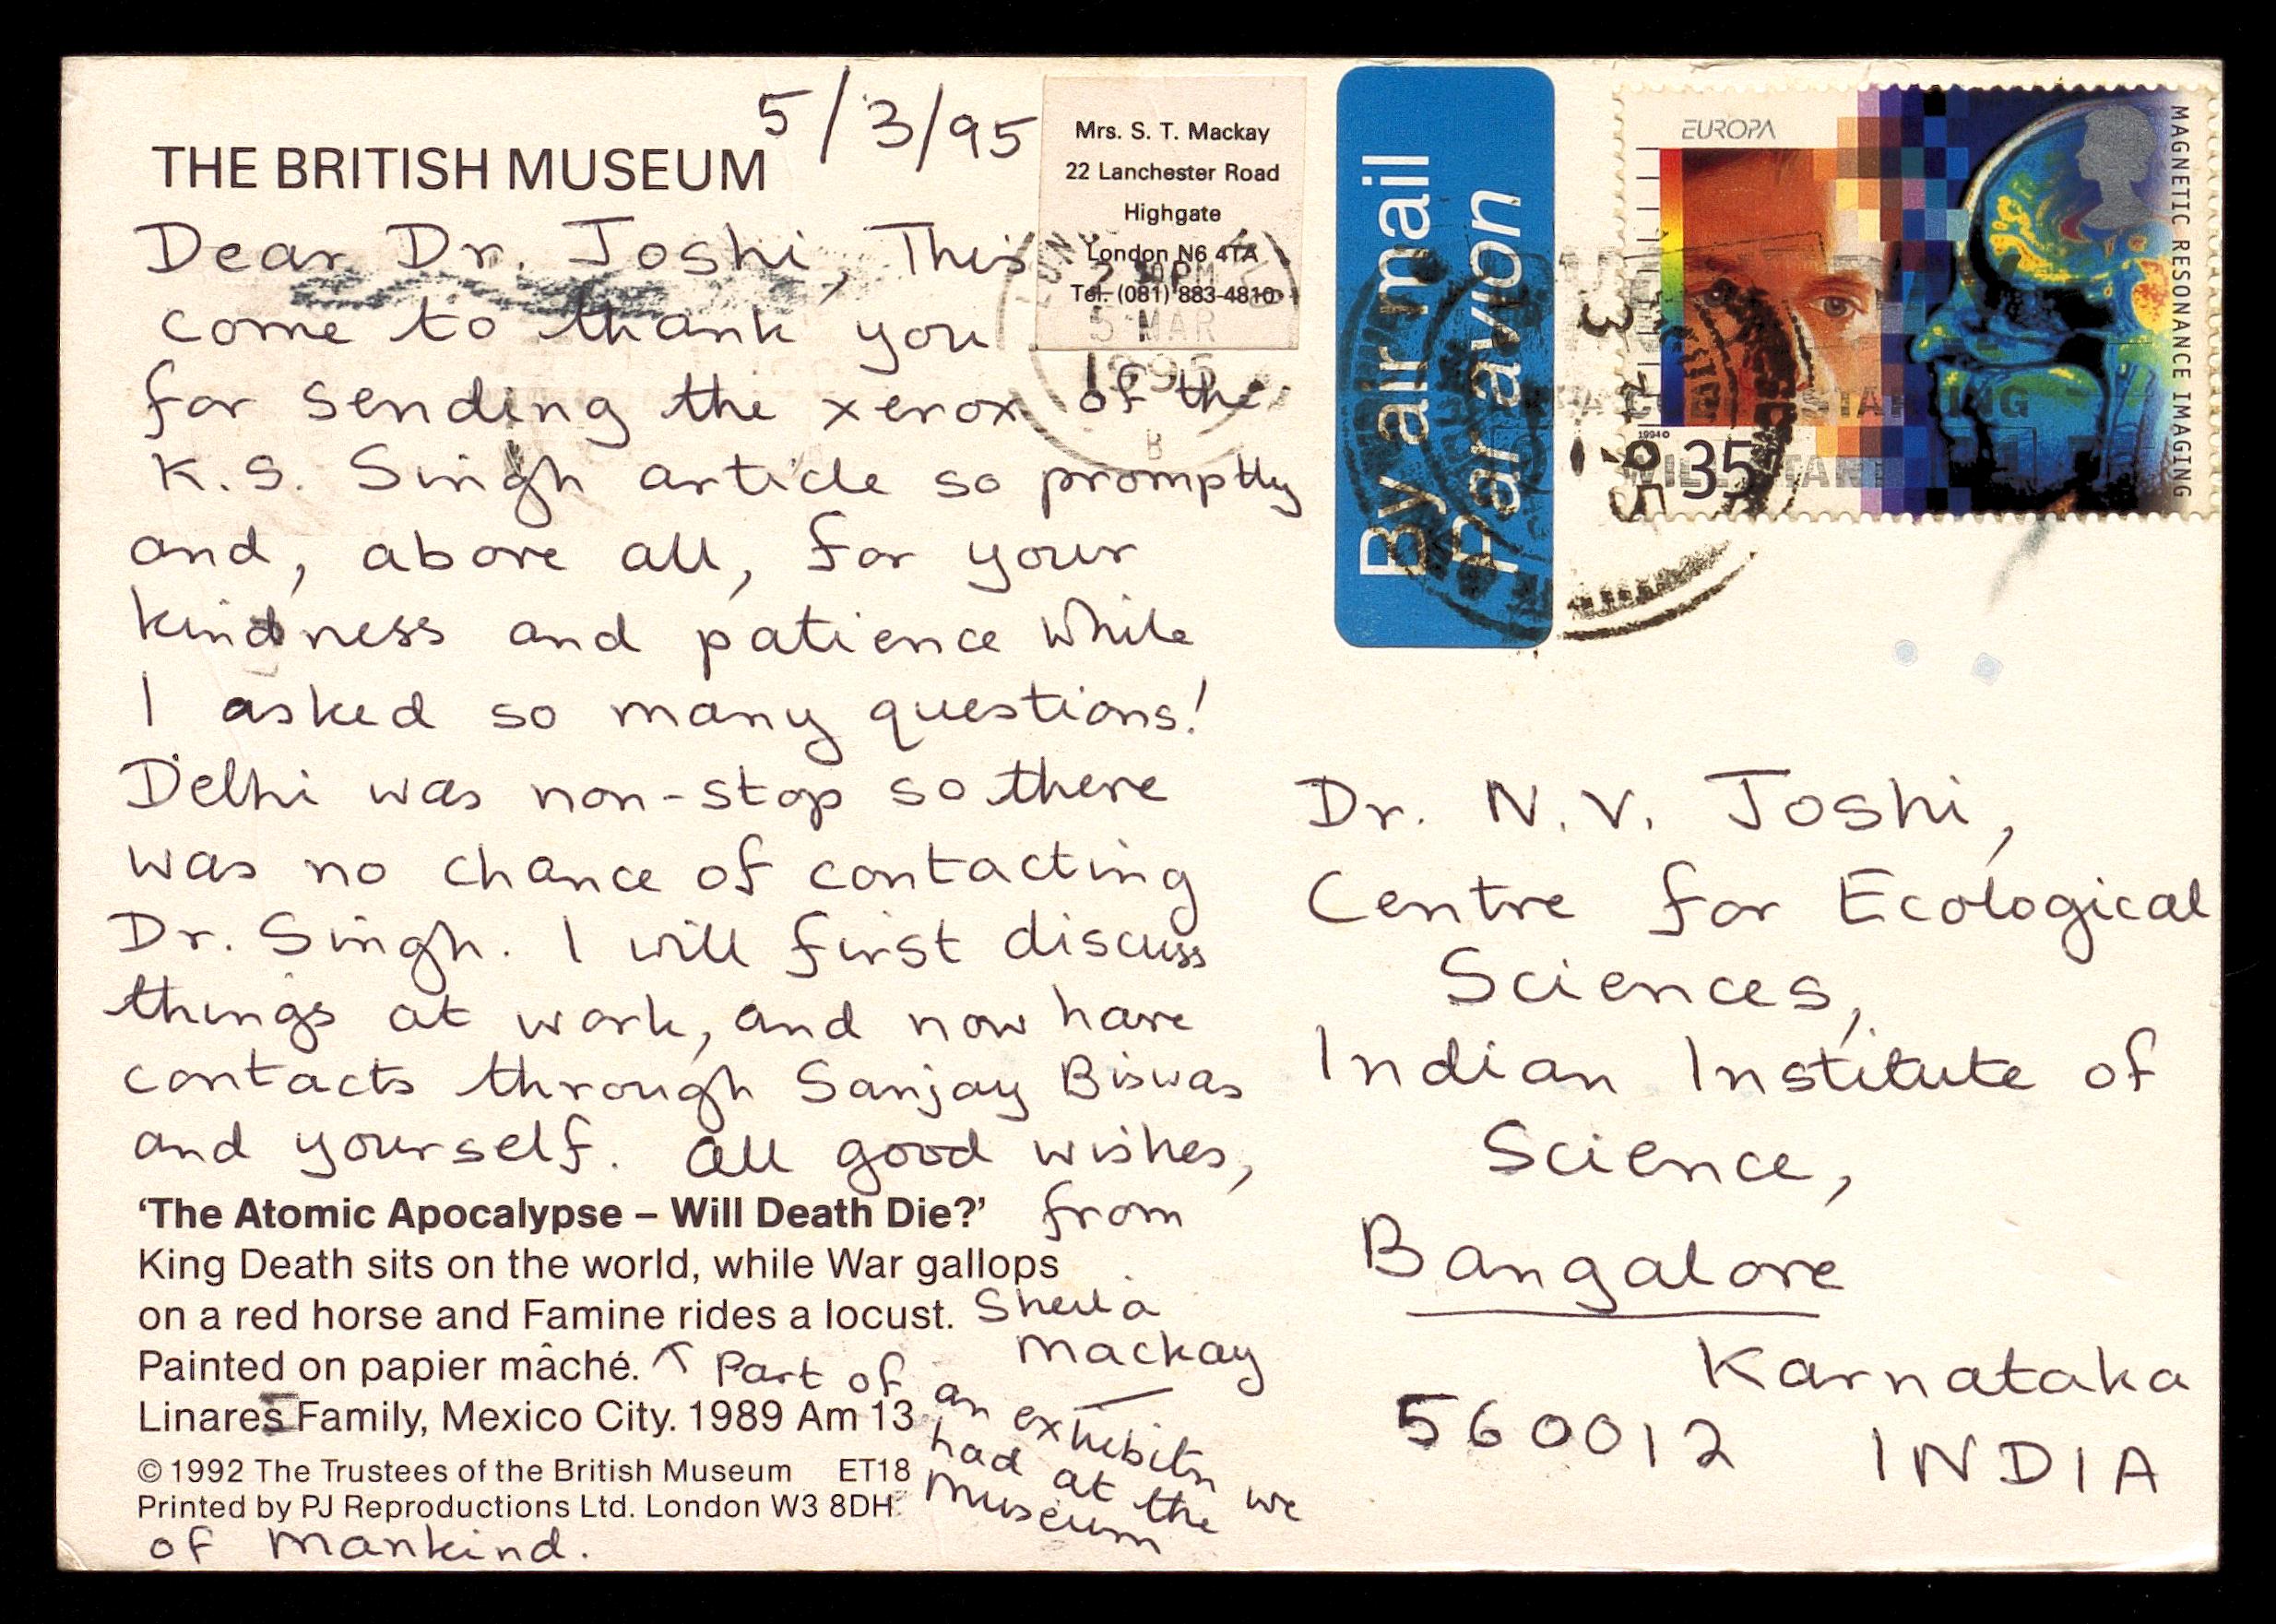 THE BRITISH MUSEUM
5/3/95
Mrs. S. T. Mackay
22 Lanchester Road
Highgate
London N6 4TA
Tel. (081) 883-4810
Dear Dr. Joshi, This
come to thank you
for sending the xerox of the
K.S. Singh article so promptly
and, above all, for your
kindness and patience while
I asked so many questions!
Delhi was non-stop so there
was no chance of contacting
Dr. Singh. I will first discuss
things at work, and now have
contacts through Sanjay Biswas
and yourself. All good wishes,
from
Sheila
Mackay
'The Atomic Apocalypse – Will Death Die?'
King Death sits on the world, while War gallops
on a red horse and Famine rides a locust.
Painted on papier mâché.
Linares Family, Mexico City. 1989 Am 13
© 1992 The Trustees of the British Museum ET18
Printed by PJ Reproductions Ltd. London W3 8DH
↑ Part of
an exhibitn we
had at the
Museum
of Mankind.
By air mail
Par avion
EUROPA
MAGNETIC RESONANCE IMAGING
1994
35
5 MAR
1995
B
Dr. N.V. Joshi,
Centre for Ecological
Sciences,
Indian Institute of
Science,
Bangalore
Karnataka
560012 INDIA